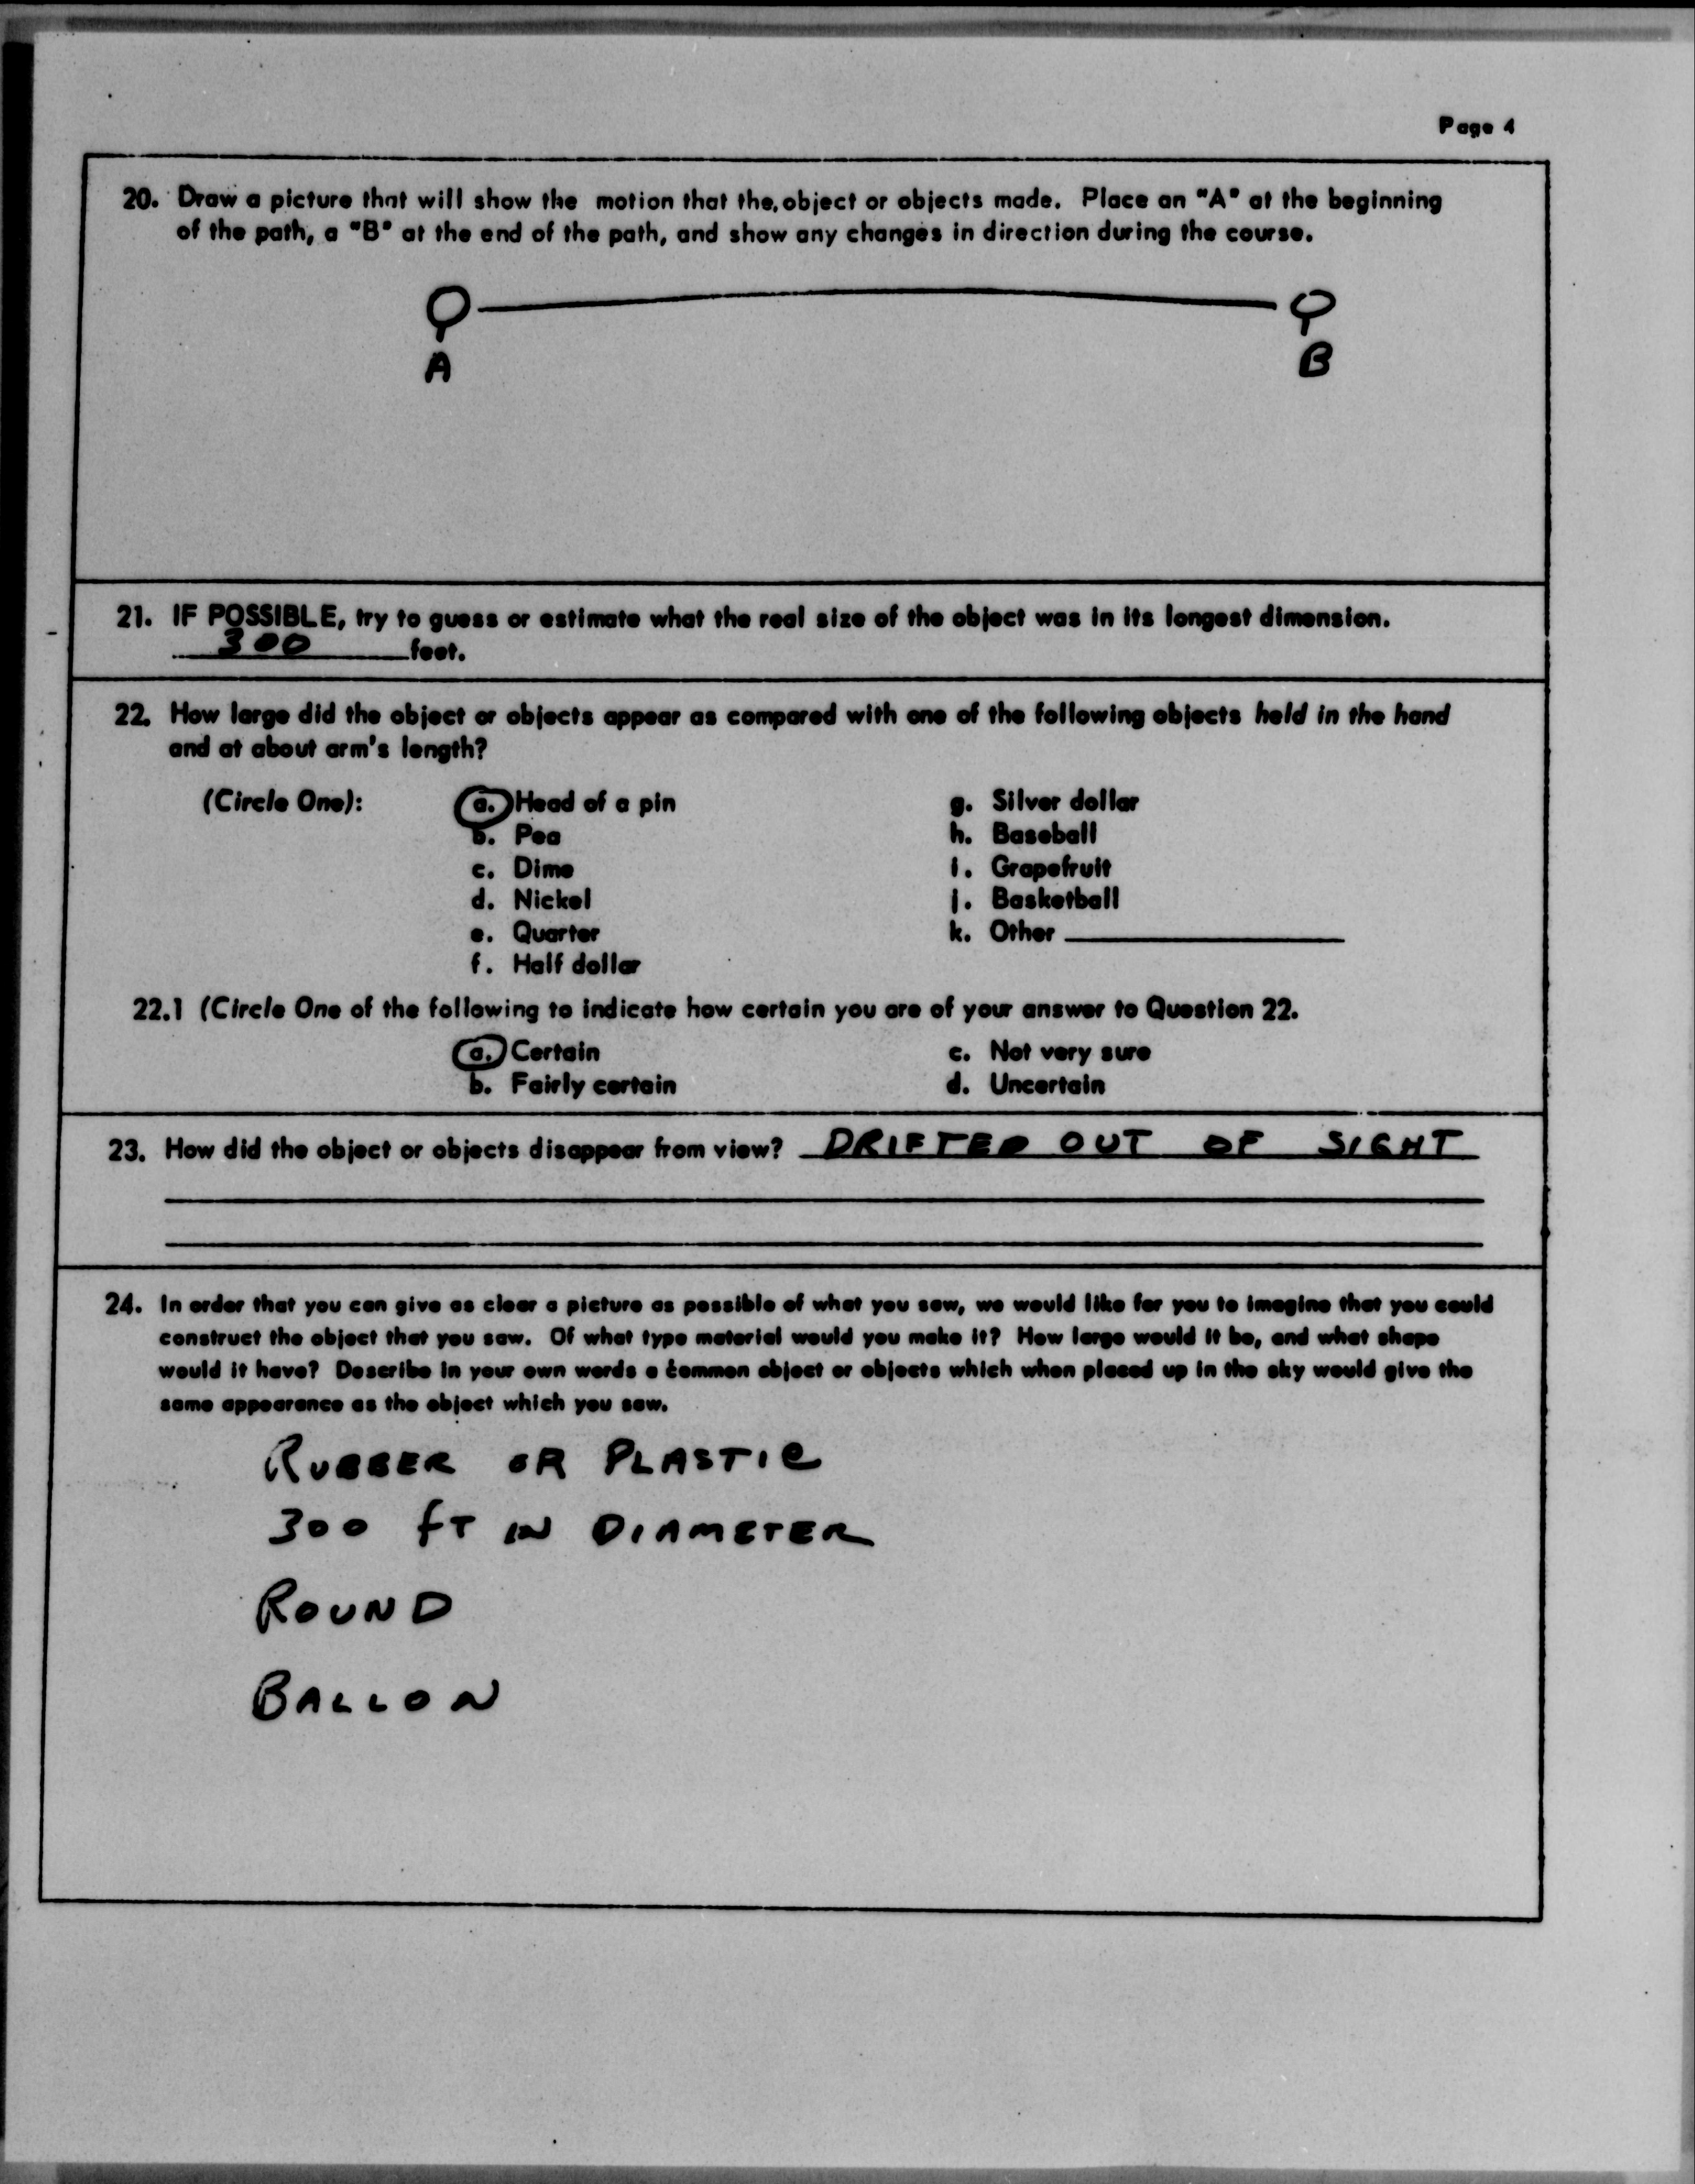 Page 4
20. Draw a picture that will show the motion that the object or objects made. Place an "A" at the beginning
of the path, a "B" at the end of the path, and show any changes in direction during the course.
A B
21. IF POSSIBLE, try to guess or estimate what the real size of the object was in its longest dimension.
300 feet.
22. How large did the object or objects appear as compared with one of the following objects held in the hand
and at about arm's length?
(Circle One): a. Head of a pin g. Silver dollar
b. Pea h. Baseball
c. Dime i. Grapefruit
d. Nickel j. Basketball
e. Quarter k. Other
f. Half dollar
22.1 (Circle One of the following to indicate how certain you are of your answer to Question 22.
a. Certain c. Not very sure
b. Fairly certain d. Uncertain
23. How did the object or objects disappear from view? DRIFTED OUT OF SIGHT
24. In order that you can give as clear a picture as possible of what you saw, we would like for you to imagine that you could
construct the object that you saw. Of what type material would you make it? How large would it be, and what shape
would it have? Describe in your own words a common object or objects which when placed up in the sky would give the
same appearance as the object which you saw.
RUBBER OR PLASTIC
300 FT IN DIAMETER
ROUND
BALLON